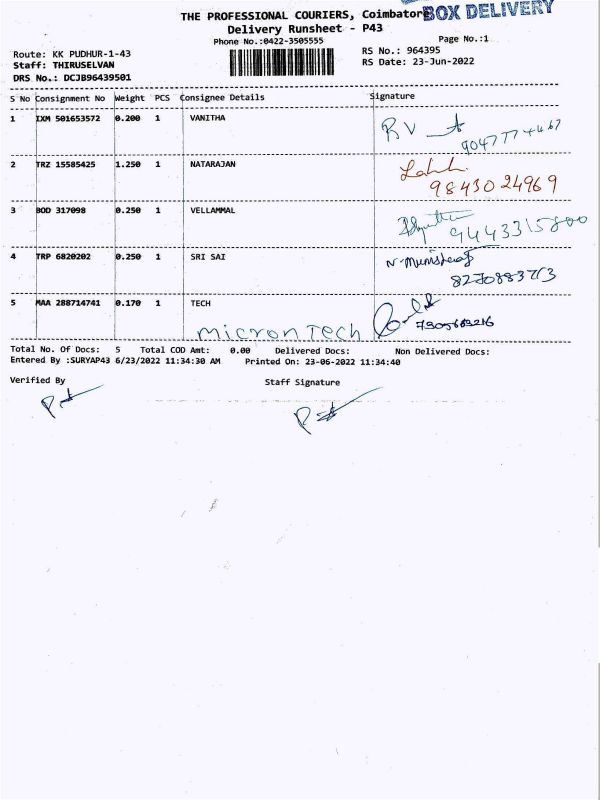 THE PROFESSIONAL COURIERS, Coimbatore BOX DELIVERY
Delivery Runsheet - P43
Phone No.:0422-3505555 Page No.:1
Route: KK PUDHUR-1-43 RS No.: 964395
Staff: THIRUSELVAN RS Date: 23-Jun-2022
DRS No.: DCJB96439501
S No Consignment No Weight PCS Consignee Details Signature
1 IXM 501653572 0.200 1 VANITHA
2 TRZ 15585425 1.250 1 NATARAJAN
9843024969
3 BOD 317098 0.250 1 VELLAMMAL
9443315800
4 TRP 6820202 0.250 1 SRI SAI
5 MAA 288714741 0.170 1 TECH
micron Tech
Total No. Of Docs: 5 Total COD Amt: 0.00 Delivered Docs: Non Delivered Docs:
Entered By :SURYAP43 6/23/2022 11:34:30 AM Printed On: 23-06-2022 11:34:40
Verified By Staff Signature